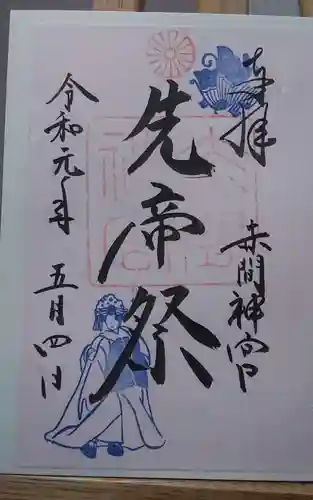 奉拝
赤間神宮
先帝祭
令和元年
五月四日